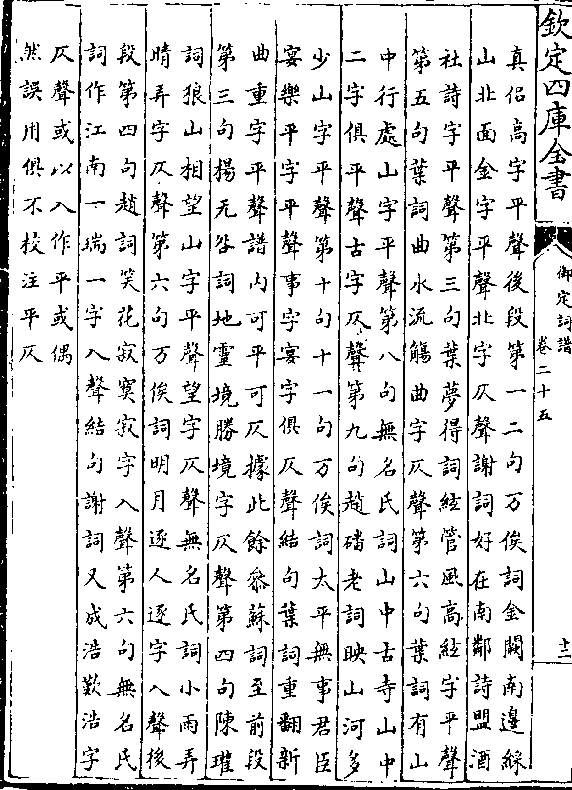 欽定四庫全書
御定詞譜
卷二十五
十二
真侣高字平聲後段第一二句万俟詞金闕南邊綵
山北面金字平聲北字仄聲謝詞好在南鄰詩盟酒
社詩字平聲第三句葉夢得詞絃管風高絃字平聲
第五句葉詞曲水流觴曲字仄聲第六句葉詞有山
中行處山字平聲第八句無名氏詞山中古寺山中
二字俱平聲古字仄聲第九句趙磻老詞映山河多
少山字平聲第十句十一句万俟詞太平無事君臣
宴樂平字平聲事字宴字俱仄聲結句葉詞重翻新
曲重字平聲譜内可平可仄據此餘參蘇詞至前段
第三句楊无咎詞地靈境勝境字仄聲第四句陳瓘
詞狼山相望山字平聲望字仄聲無名氏詞小雨弄
晴弄字仄聲第六句万俟詞明月逐人逐字入聲後
段第四句趙詞笑花寂寞寂字入聲第六句無名氏
詞作江南一瑞一字入聲結句謝詞又成浩歎浩字
仄聲或以入作平或偶
然誤用俱不校注平仄